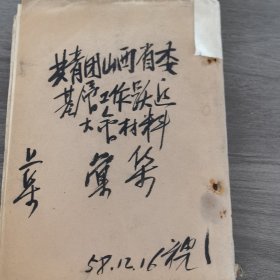 共青团山西省委
基层工作跃进
大会材料
汇集
上集
58.12.16